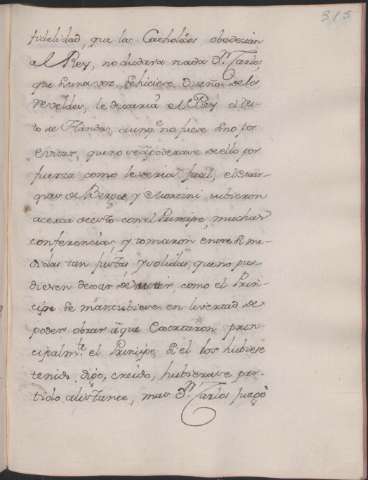 315
fidelidad, que los Catholicos obedecian
al Rey, no dudara nada Dn. Carlos,
que una vez se hiciese Dueño de los
Reveldes, le dejaria el Rey el
to de Flandes, aunqe. no fuese sino por
evitar, que no se apoderase de ello por
fuerza como le seria facil, el Mar-
ques de Bergas y Montini tubieron
acerca de esto con el Principe, muchas
conferencias, y tomaron entre sí me-
didas tan justas y solidas, que no pu-
diesen dejar de salir, como el Prin-
cipe se mantubiese en livertad de
poder obrar lo que trataron prin-
cipalmte. el Principe. Si él los hubiese
tenido, dijo, creido, hubiera par-
tido al instante, mas Dn. Carlos juzgó